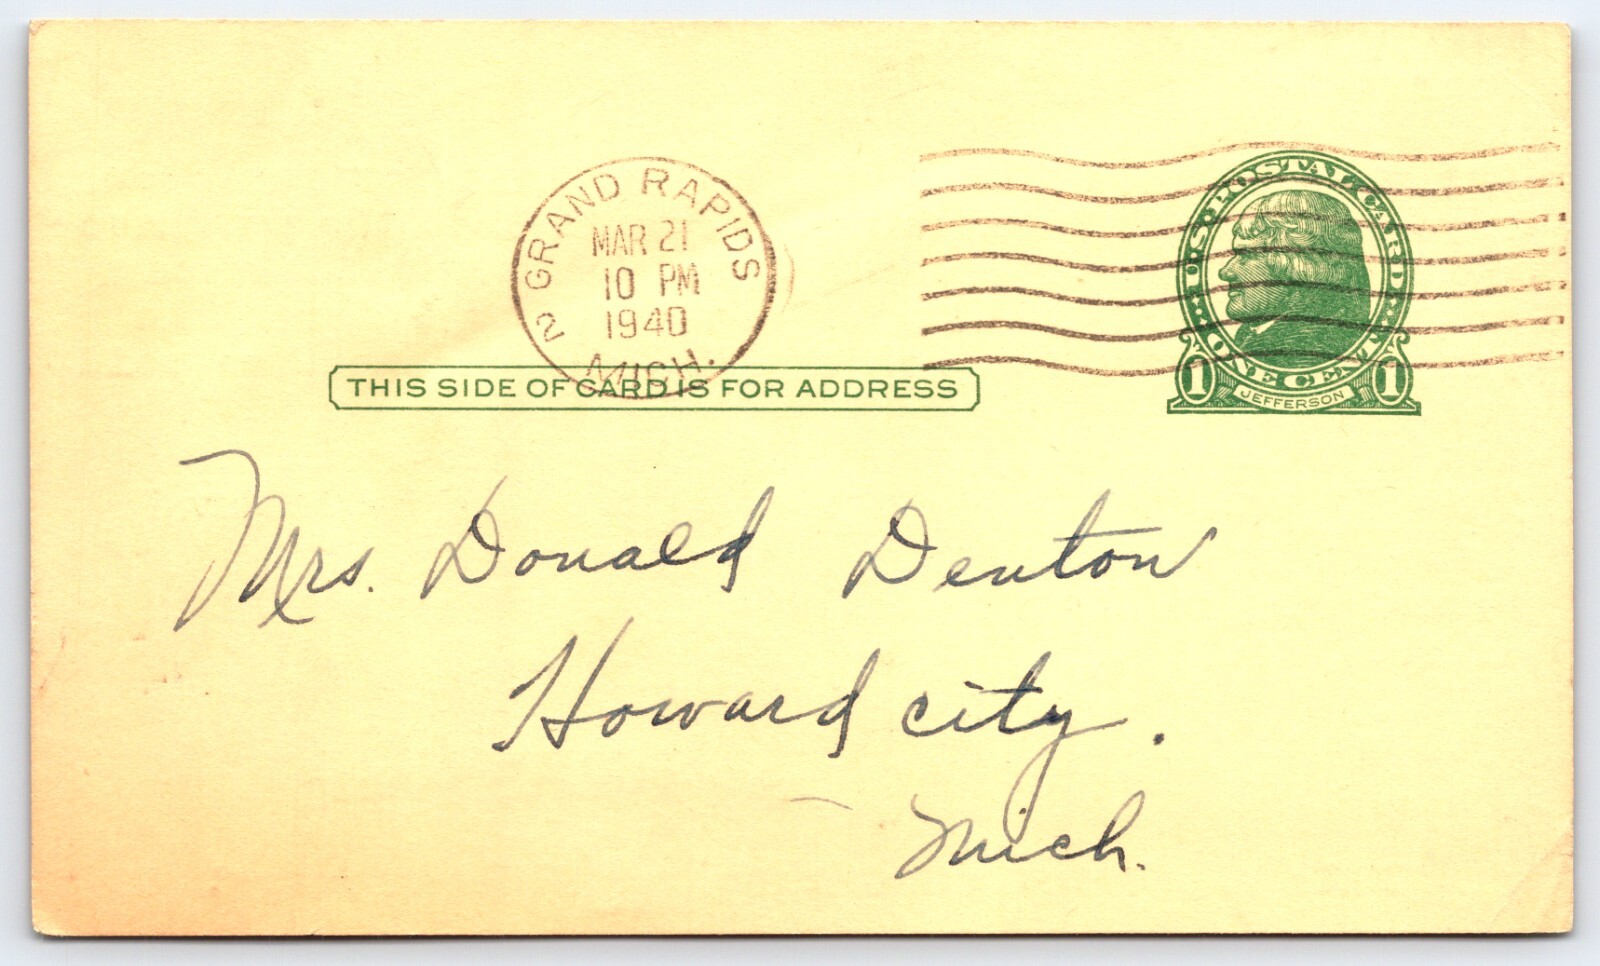 2 GRAND RAPIDS
MAR 21
10 PM
1940
MICH.
U·S·POSTAL CARD
ONE CENT
1 JEFFERSON 1
THIS SIDE OF CARD IS FOR ADDRESS
Mrs. Donald Denton
Howard city.
Mich.